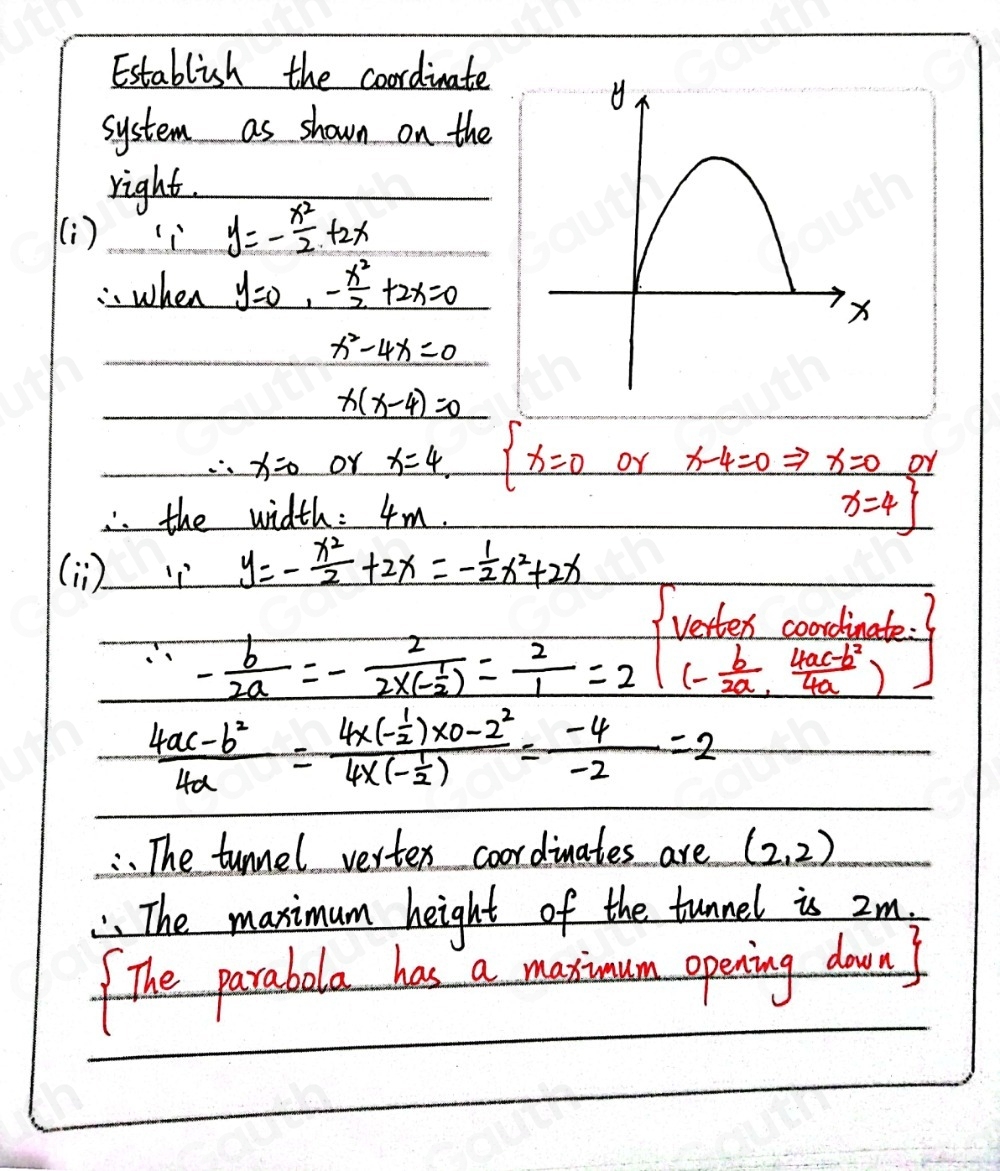 Establish the coordinate
system as shown on the
right.
y
x
(i) ∵ y=-x²/2+2x
∴ when y=0, -x²/2+2x=0
x²-4x=0
x(x-4)=0
∴ x=0 or x=4. {x=0 or x-4=0 ⇒ x=0 or
x=4}
∴ the width: 4m.
(ii) ∵ y=-x²/2+2x=-1/2x²+2x
{vertex coordinate:
(-b/2a, (4ac-b²)/4a)}
∴ -b/2a=-2/(2×(-1/2))=2/1=2
(4ac-b²)/4a=(4×(-1/2)×0-2²)/(4×(-1/2))=-4/-2=2
∴ The tunnel vertex coordinates are (2,2)
∴ The maximum height of the tunnel is 2m.
{The parabola has a maximum opening down}
Gauth